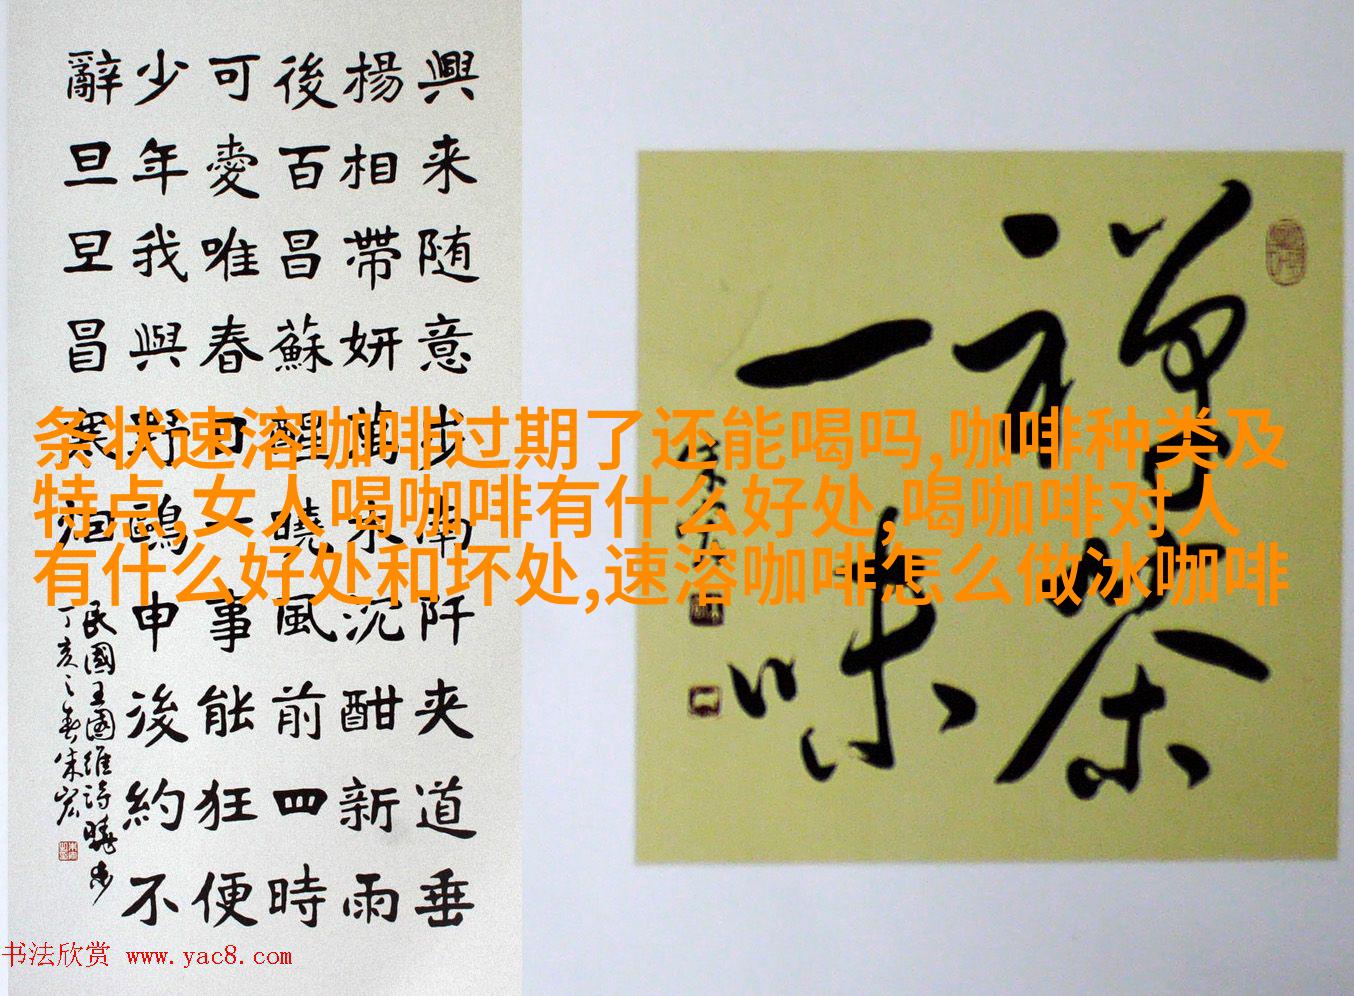 興来随意步南阡夹道垂
楊相帶妍萬木沉酣新雨
後百昌蘇醒曉風前四時
可愛唯春日一事能狂便
少年我與野鷗申後約不
辭旦旦冒寒烟
民國王國維詩曉步
丁亥之春朱宏
禪茶
一味
条状速溶咖啡过期了还能喝吗,咖啡种类及
特点,女人喝咖啡有什么好处,喝咖啡对人
有什么好处和坏处,速溶咖啡怎么做冰咖啡
书法欣赏 www.yac8.com